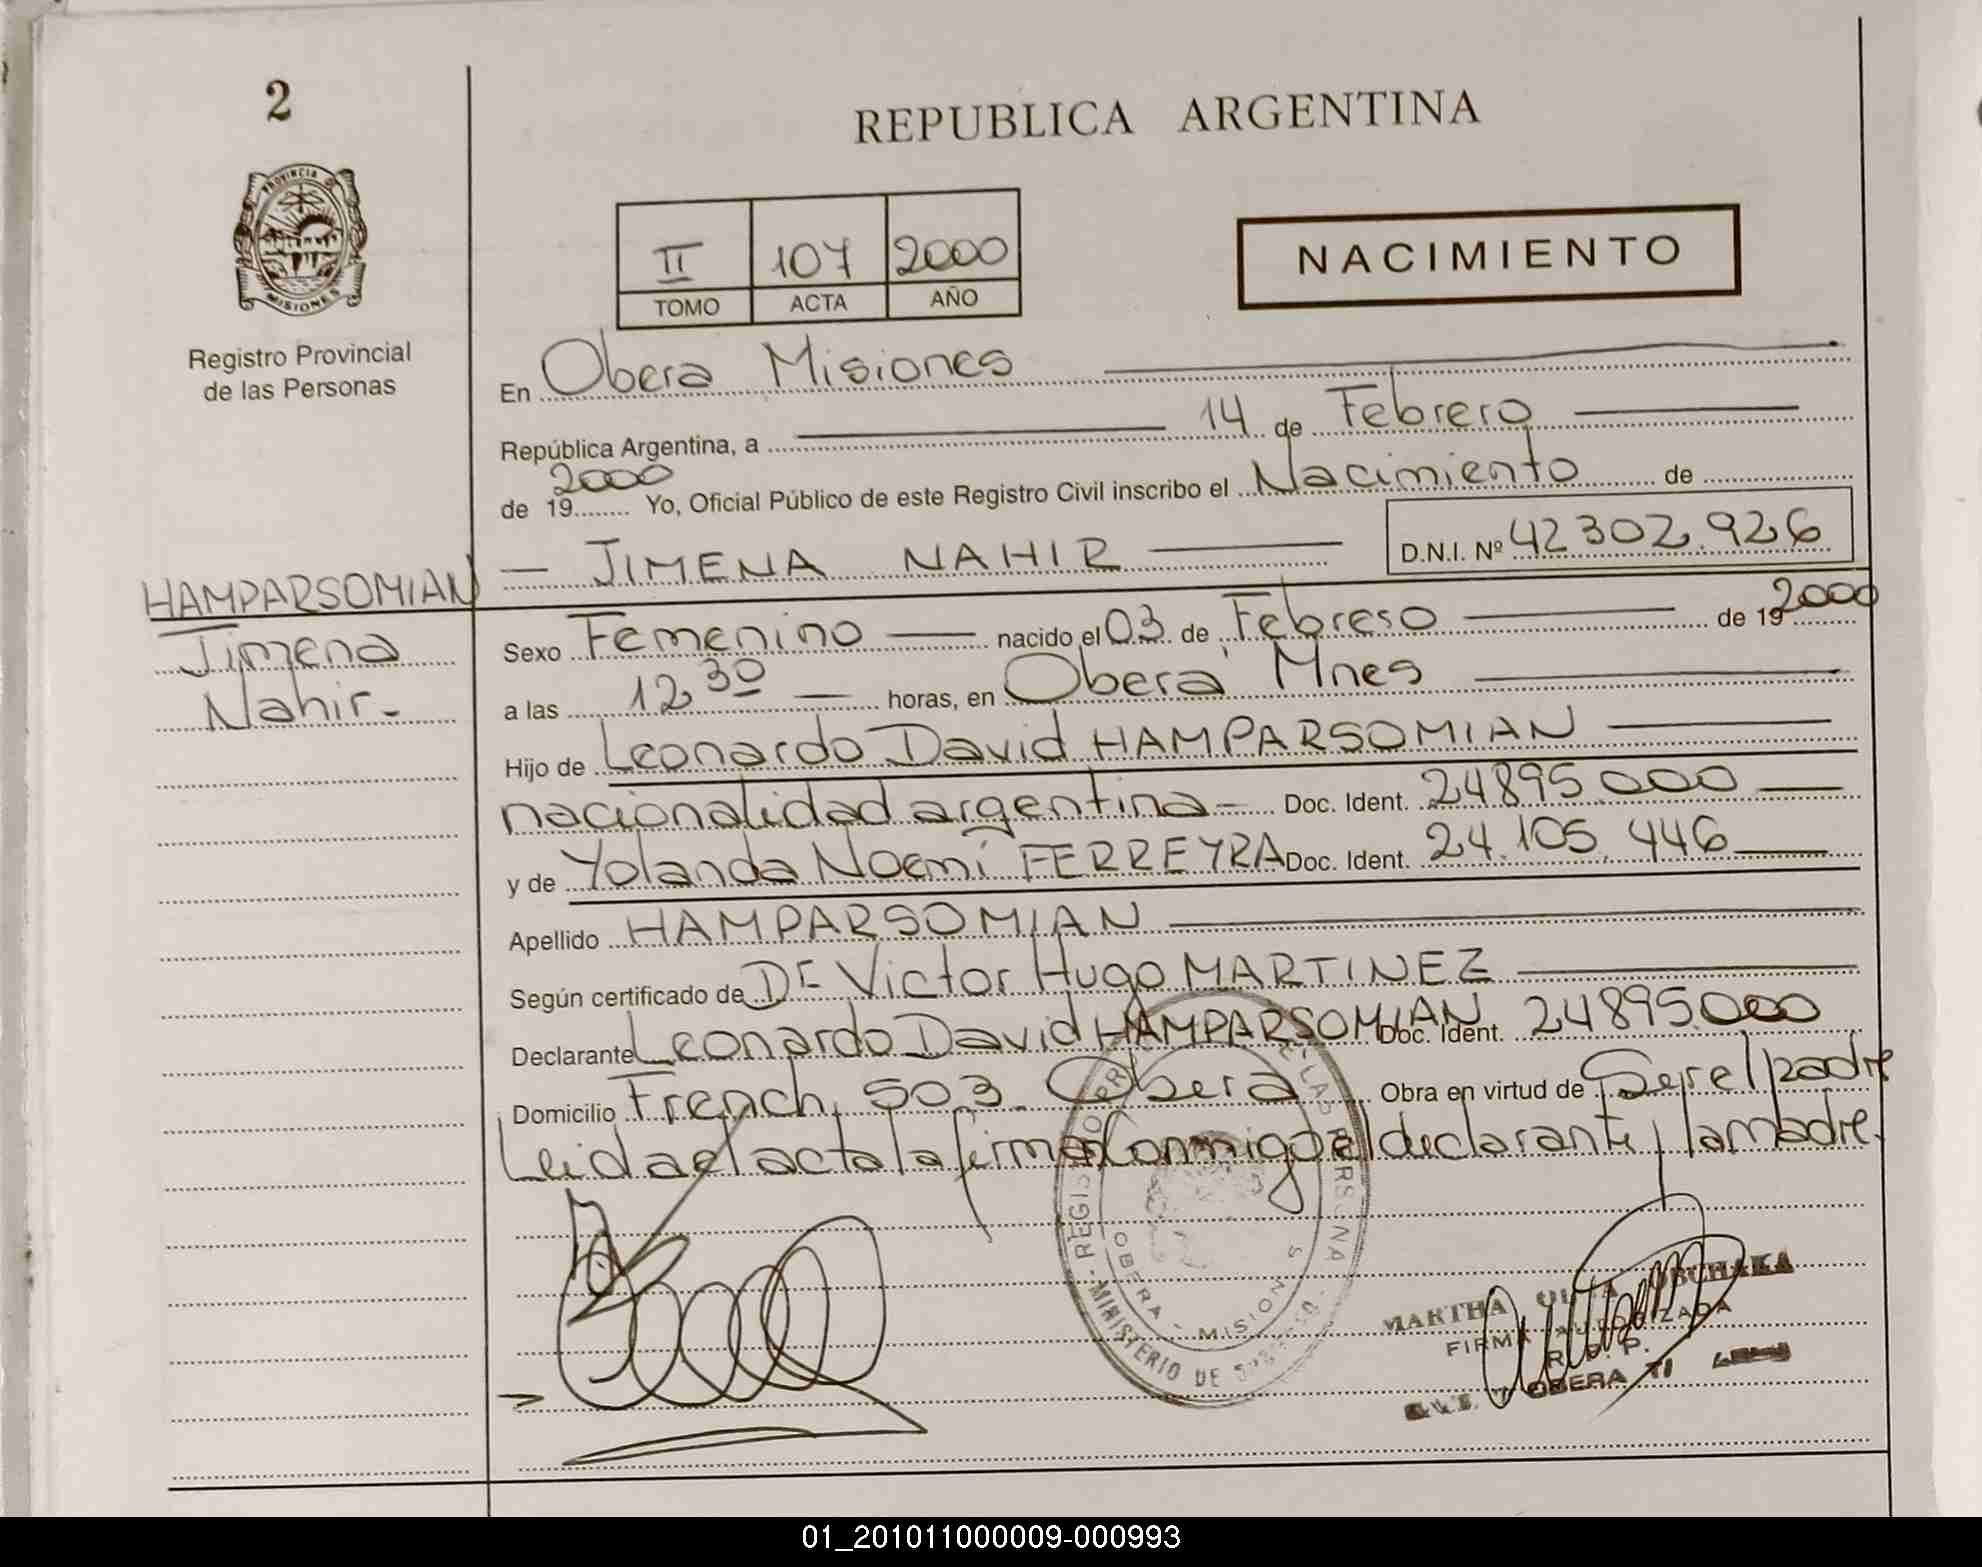 2
REPUBLICA ARGENTINA
PROVINCIA DE
MISIONES
Registro Provincial
de las Personas
II 107 2000
TOMO ACTA AÑO
NACIMIENTO
En Obera Misiones
República Argentina, a 14 de Febrero
de 19 2000 Yo, Oficial Público de este Registro Civil inscribo el Nacimiento de
JIMENA NAHIR D.N.I. Nº 42302.926
HAMPARSOMIAN
Jimena
Nahir.-
Sexo Femenino nacido el 03 de Febrero de 19 2000
a las 12,30 horas, en Oberá Mnes
Hijo de Leonardo David HAMPARSOMIAN
nacionalidad argentina- Doc. Ident. 24895.000
y de Yolanda Noemí FERREYRA Doc. Ident. 24.105.446
Apellido HAMPARSOMIAN
Según certificado de Dr Victor Hugo MARTINEZ
Declarante Leonardo David HAMPARSOMIAN Doc. Ident. 24895.000
Domicilio French 503 Obera Obra en virtud de Ser el padre
Leida el acta la firman conmigo el declarante y la madre.
REGISTRO PR DE LAS PERSONA
MINISTERIO DE
OBERA - MISIONES
MARTHA OBCHAKA
FIRMA AUTORIZADA
R. P.
OBERA
01_201011000009-000993